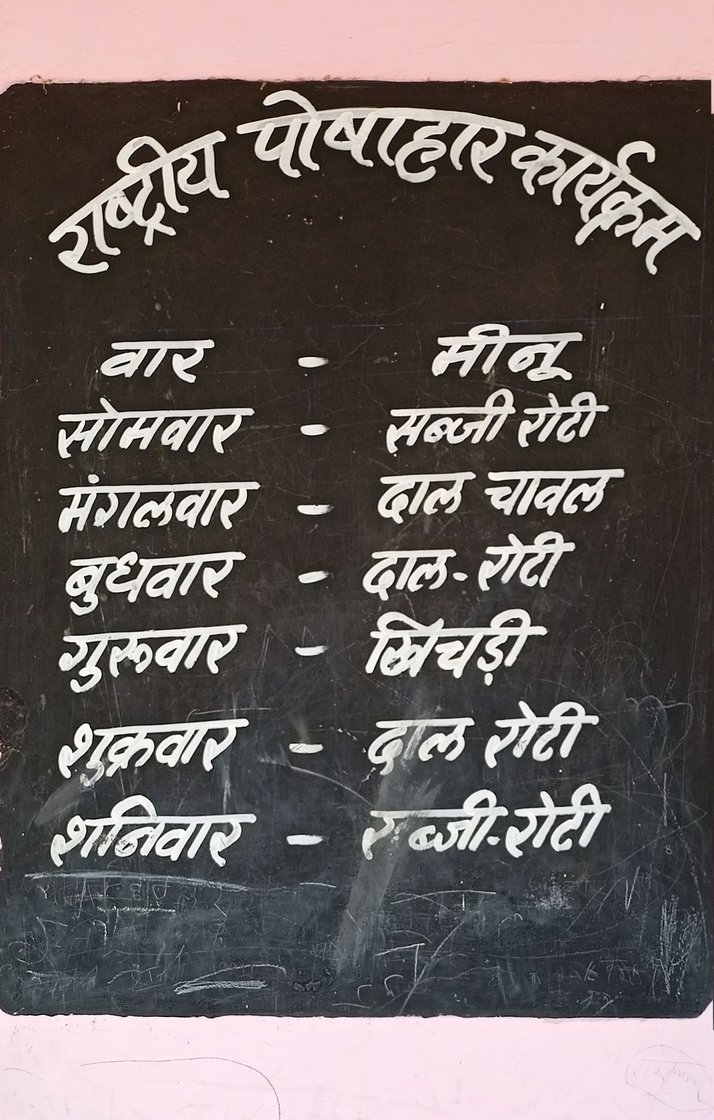 राष्ट्रीय पोषाहार कार्यक्रम
वार - मीनू
सोमवार - सब्जी रोटी
मंगलवार - दाल चावल
बुधवार - दाल-रोटी
गुरूवार - खिचड़ी
शुक्रवार - दाल रोटी
शनिवार - सब्जी-रोटी